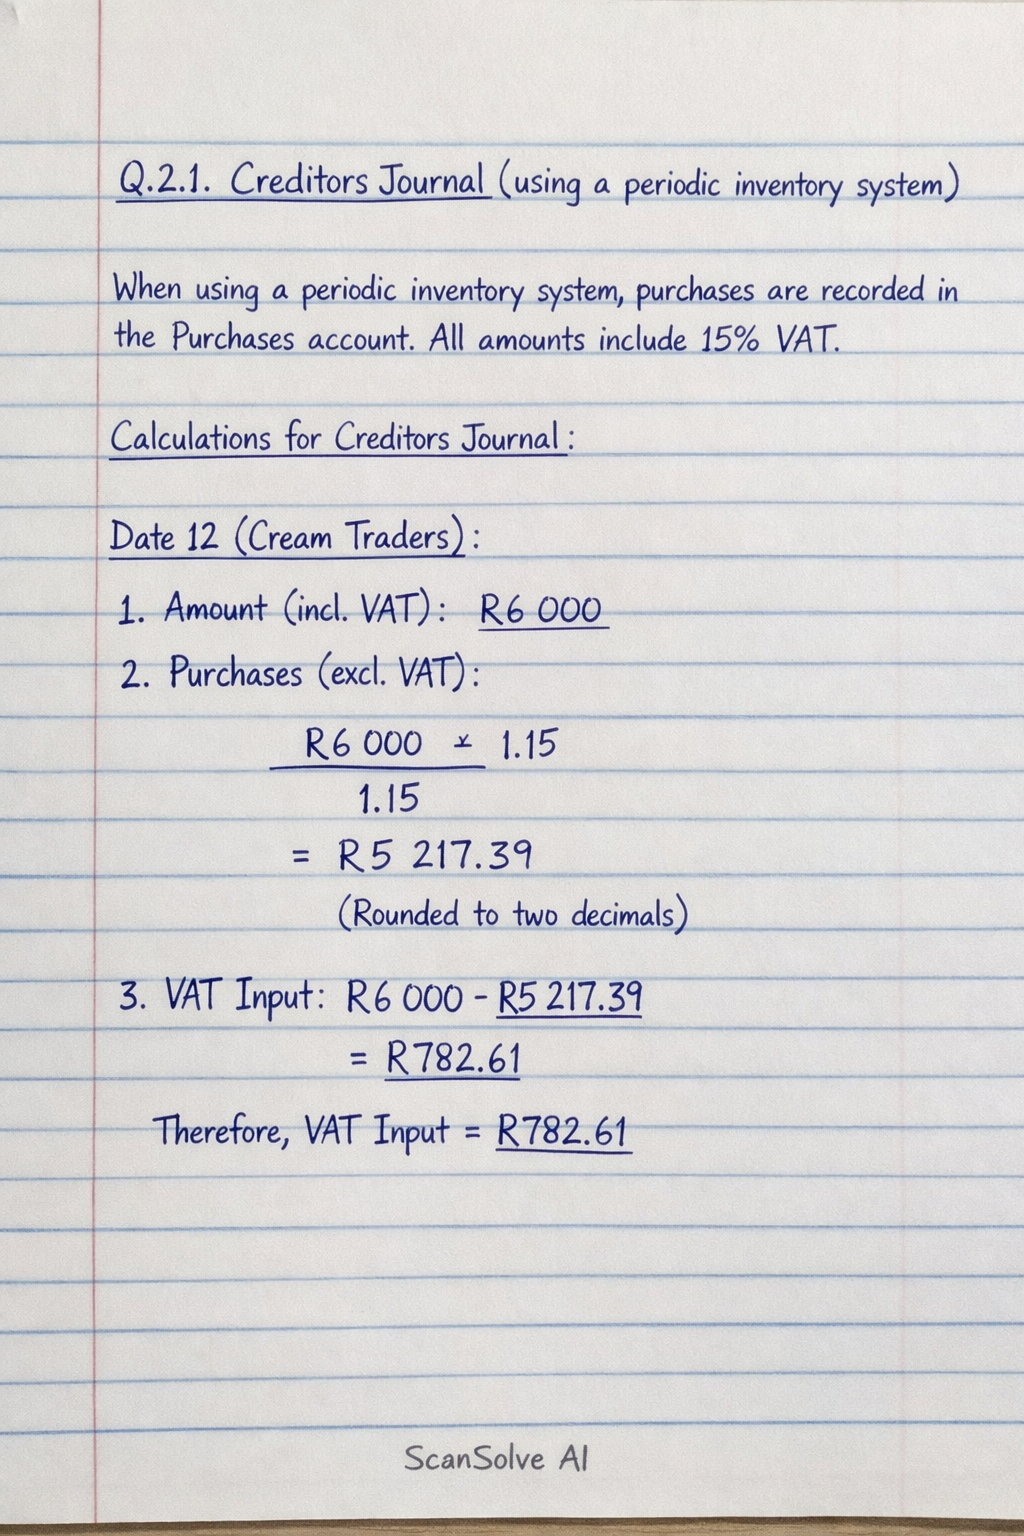 Q.2.1. Creditors Journal (using a periodic inventory system)
When using a periodic inventory system, purchases are recorded in
the Purchases account. All amounts include 15% VAT.
Calculations for Creditors Journal:
Date 12 (Cream Traders):
1. Amount (incl. VAT): R6 000
2. Purchases (excl. VAT):
R6 000 × 1.15
1.15
= R5 217.39
(Rounded to two decimals)
3. VAT Input: R6 000 - R5 217.39
= R782.61
Therefore, VAT Input = R782.61
ScanSolve AI